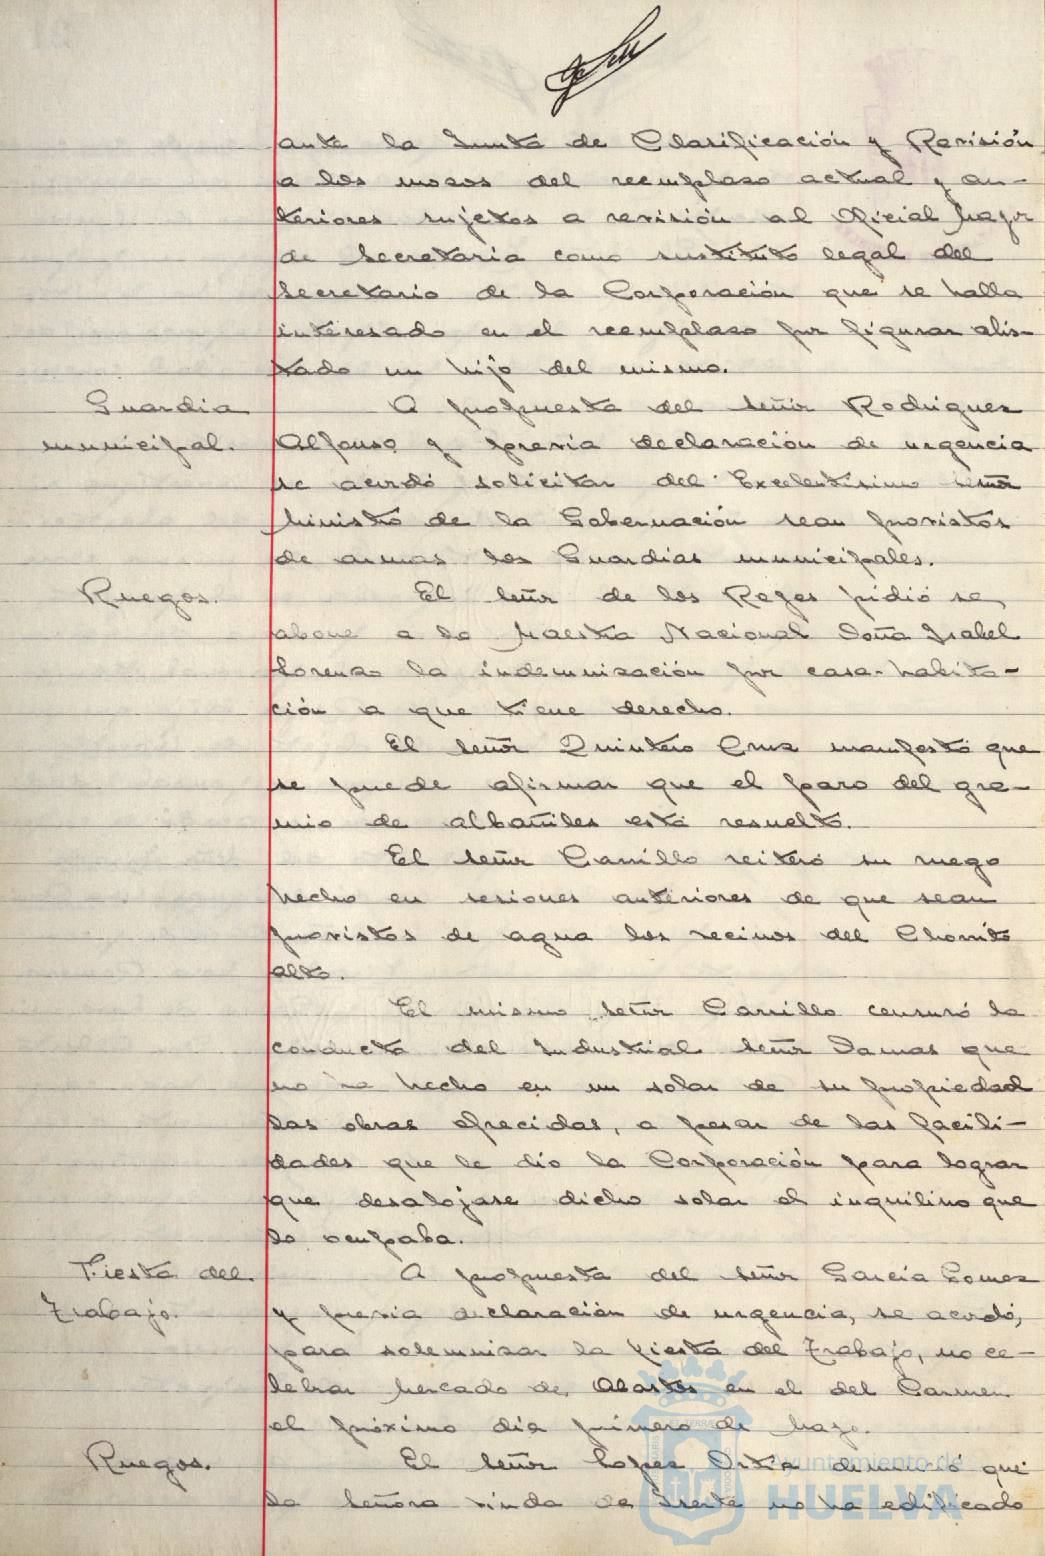 ante la Junta de Clasificación y Revisión
a los mosos del reemplaso actual y an-
teriores sujetos a revisión al Oficial Mayor
de Secretaria como sustituto legal del
Secretario de la Corporación que se halla
interesado en el reemplaso por figurar alis-
tado un hijo del mismo.
Guardia
municipal.
A propuesta del señor Rodriguez
Alfonso y previa declaración de urgencia
se acordó solicitar del Excelentisimo señor
Ministro de la Gobernación sean provistos
de armas los Guardias municipales.
Ruegos.
El señor de los Reyes pidió se
abone a la Maestra Nacional Doña Isabel
Lorenzo la indemnisación por casa-habita-
ción a que tiene derecho.
El señor Quintero Cruz manifestó que
se puede afirmar que el paro del gre-
mio de albañiles está resuelto.
El señor Carrillo reiteró su ruego
hecho en sesiones anteriores de que sean
provistos de agua los vecinos del Chorrito
alto.
El mismo señor Carrillo censuró la
conducta del Industrial señor Damas que
no ha hecho en un solar de su propiedad
las obras ofrecidas, a pesar de las facili-
dades que le dio la Corporación para lograr
que desalojase dicho solar el inquilino que
lo ocupaba.
Fiesta del
Trabajo.
A propuesta del señor García Gomez
y previa declaración de urgencia, se acordó,
para solemnisar la fiesta del Trabajo, no ce-
lebrar Mercado de Abastos en el del Carmen
el próximo día primero de Mayo.
Ruegos.
El señor Lopez Ortia denunció que
la Señora viuda de no ha edificado
Ayuntamiento de
HUELVA